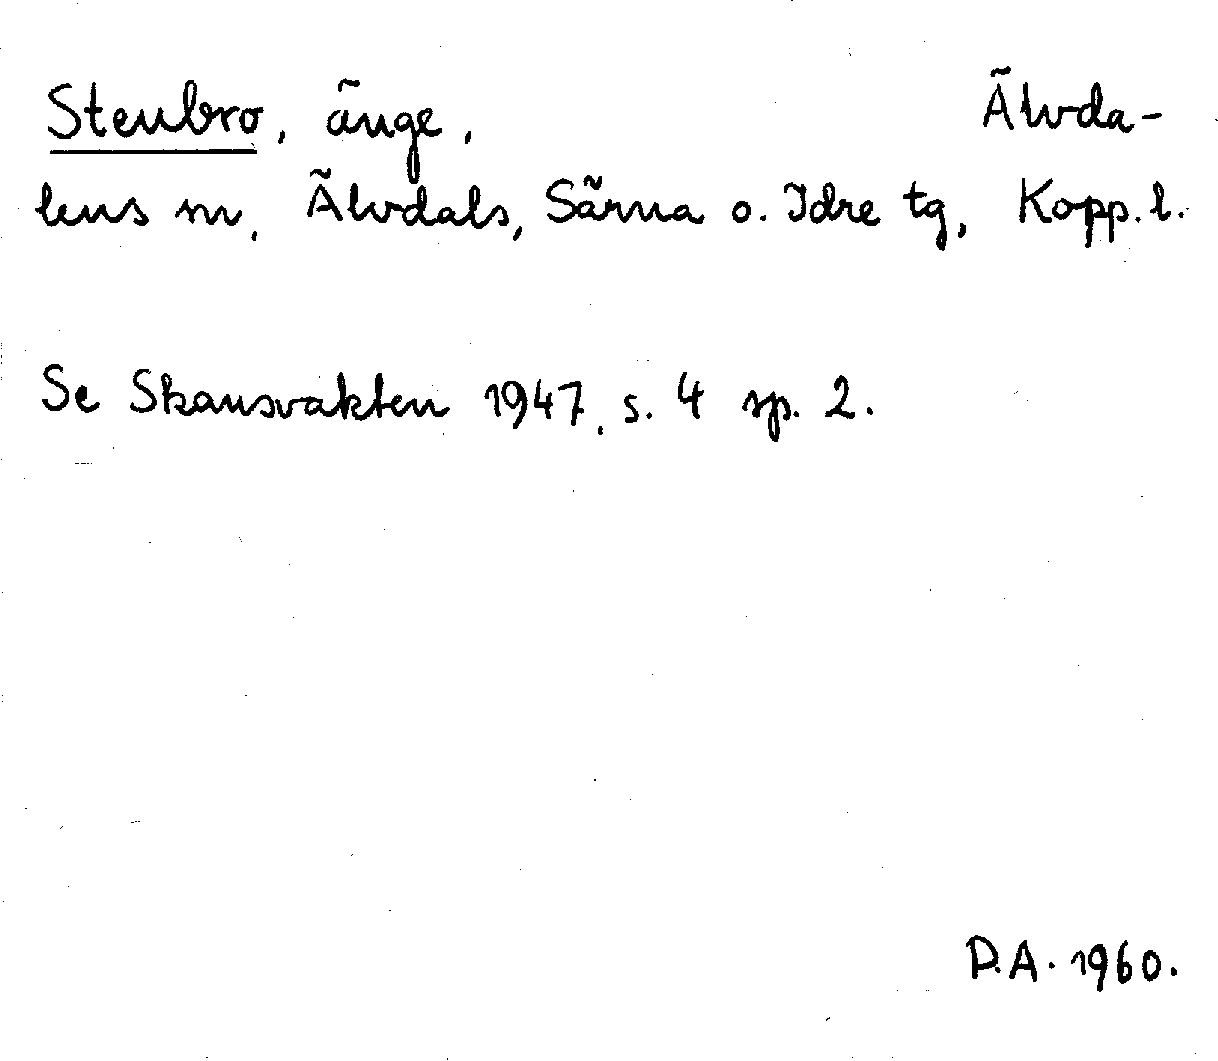 Stenbro, änge, Älvda-
lens sn, Älvdals, Särna o. Idre tg, Kopp. l.
Se Skansvakten 1947, s. 4 sp. 2.
D.A. 1960.